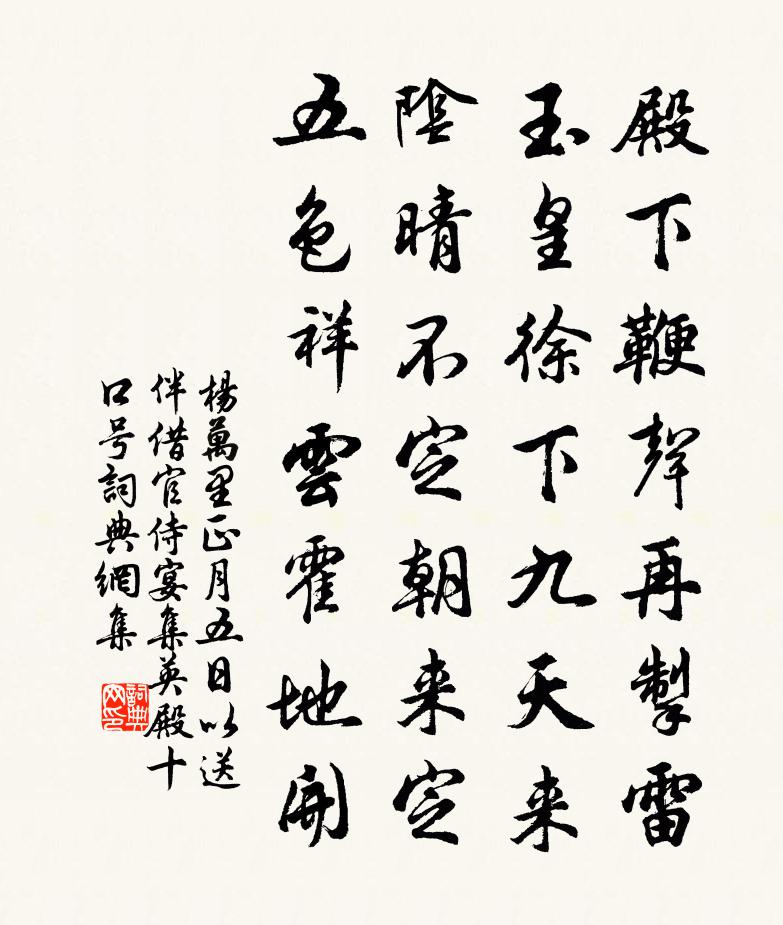 殿下鞭聲再掣雷
玉皇徐下九天来
陰晴不定朝来定
五色祥雲霍地開
楊萬里正月五日以送
伴借官侍宴集英殿十
口号詞典網集
詞典
网印